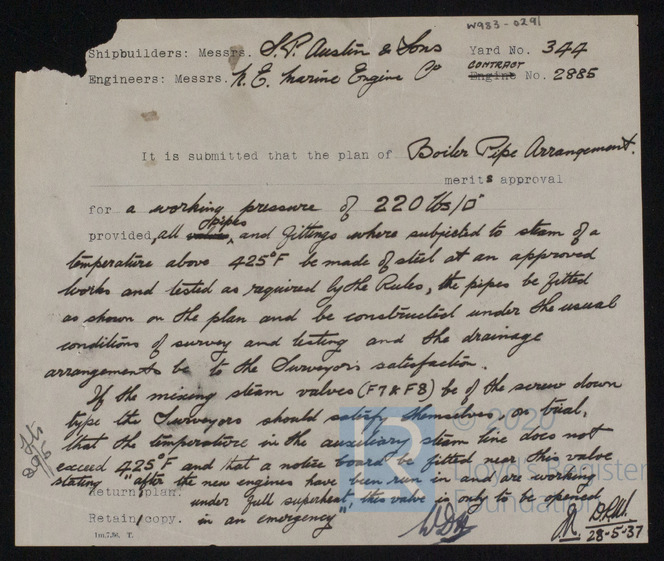 W983-0291
Shipbuilders: Messrs. S. P. Austin & Sons Yard No. 344
Engineers: Messrs. N. E. Marine Engine Co CONTRACT Engine No. 2885
It is submitted that the plan of Boiler Pipe Arrangement.
merits approval
for a working pressure of 220 lbs/□"
provided, all valves, pipes and fittings where subjected to steam of a
temperature above 425°F be made of steel at an approved
works and tested as required by the Rules, the pipes be fitted
as shown on the plan and be constructed under the usual
conditions of survey and testing and the drainage
arrangements be to the Surveyors satisfaction.
If the mixing steam valves (F7 & F8) be of the screw down
type the Surveyors should satisfy themselves, on trial,
that the temperature in the auxiliary steam line does not
exceed 425°F and that a notice board be fitted near this valve
stating "after the new engines have been run in and are working
Return plan. under full superheat, this valve is only to be opened
Retain/copy. in an emergency"
1m.7.36. T.
28-5-37
© 2020
Lloyd's Register
Foundation